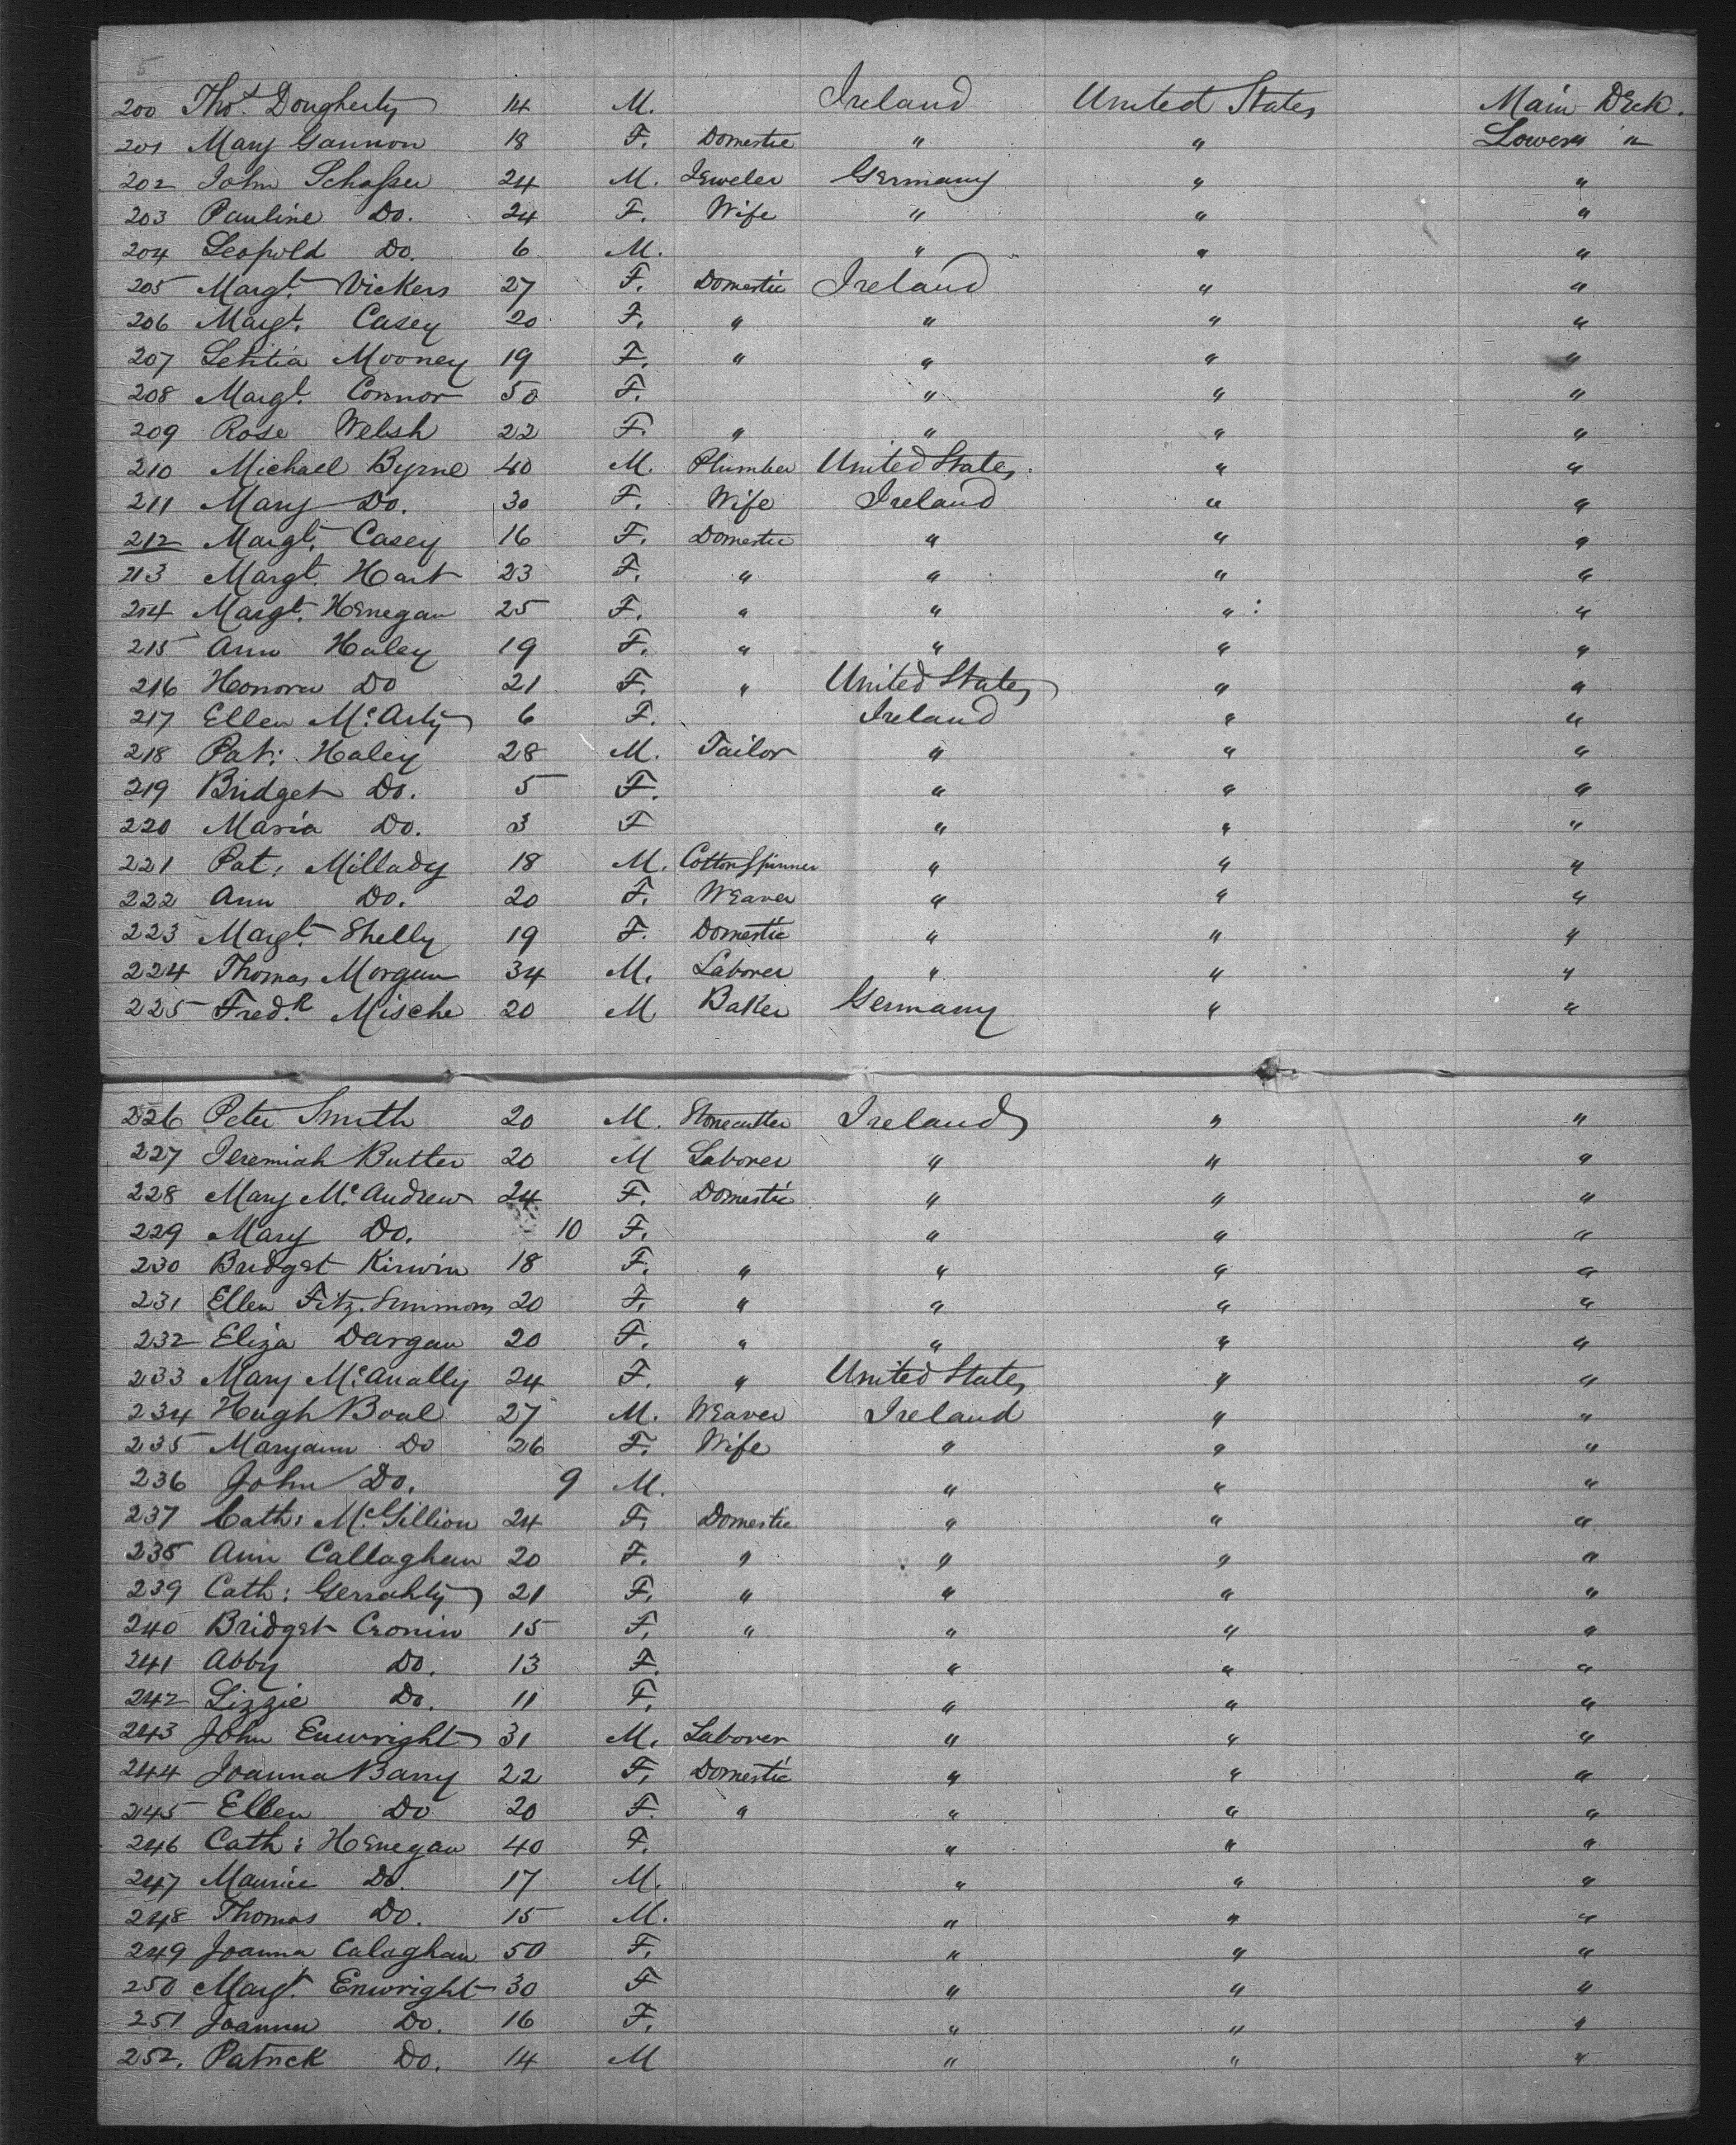 5
200 Thos. Dougherty 14 M. Ireland United States Main Deck.
201 Mary Gannon 18 F. Domestic " " Lower "
202 John Schasser 24 M. Jeweler Germany " "
203 Pauline Do. 24 F. Wife " " "
204 Leopold Do. 6 M. " " "
205 Margt. Vickers 27 F. Domestic Ireland " "
206 Margt. Casey 20 F. " " " "
207 Letitia Mooney 19 F. " " " "
208 Margt. Connor 50 F. " " "
209 Rose Welsh 22 F. " " " "
210 Michael Byrne 40 M. Plumber United States " "
211 Mary Do. 30 F. Wife Ireland " "
212 Margt. Casey 16 F. Domestic " " "
213 Margt. Hart 23 F. " " " "
214 Margt. Henegan 25 F. " " " "
215 Ann Haley 19 F. " " " "
216 Honora Do 21 F. " United States " "
217 Ellen McArty 6 F. Ireland " "
218 Pat: Haley 28 M. Tailor " " "
219 Bridget Do. 5 F. " " "
220 Maria Do. 3 F " " "
221 Pat: Millady 18 M. Cotton Spinner " " "
222 Ann Do. 20 F. Weaver " " "
223 Margt. Shelly 19 F. Domestic " " "
224 Thomas Morgan 34 M. Laborer " " "
225 Fredk. Mische 20 M Baker Germany " "
226 Peter Smith 20 M. Stonecutter Ireland " "
227 Jeremiah Butler 20 M Laborer " " "
228 Mary McAndrew 24 F. Domestic " " "
229 Mary Do. 10 F. " " "
230 Bridget Kirwin 18 F. " " " "
231 Ellen Fitz.Simmons 20 F. " " " "
232 Eliza Dargan 20 F. " " " "
233 Mary McAnally 24 F. " United States " "
234 Hugh Boal 27 M. Weaver Ireland " "
235 Maryann Do 26 F. Wife " " "
236 John Do. 9 M. " " "
237 Cath: McGillion 24 F. Domestic " " "
238 Ann Callaghan 20 F. " " " "
239 Cath: Gerrahty 21 F. " " " "
240 Bridget Cronin 15 F. " " " "
241 Abby Do. 13 F. " " "
242 Lizzie Do. 11 F. " " "
243 John Enwright 31 M. Laborer " " "
244 Joanna Barry 22 F. Domestic " " "
245 Ellen Do 20 F. " " " "
246 Cath: Henegan 40 F. " " "
247 Maurice Do. 17 M. " " "
248 Thomas Do. 15 M. " " "
249 Joanna Calaghan 50 F. " " "
250 Margt. Enwright 30 F " " "
251 Joanna Do. 16 F. " " "
252. Patrick Do. 14 M " " "